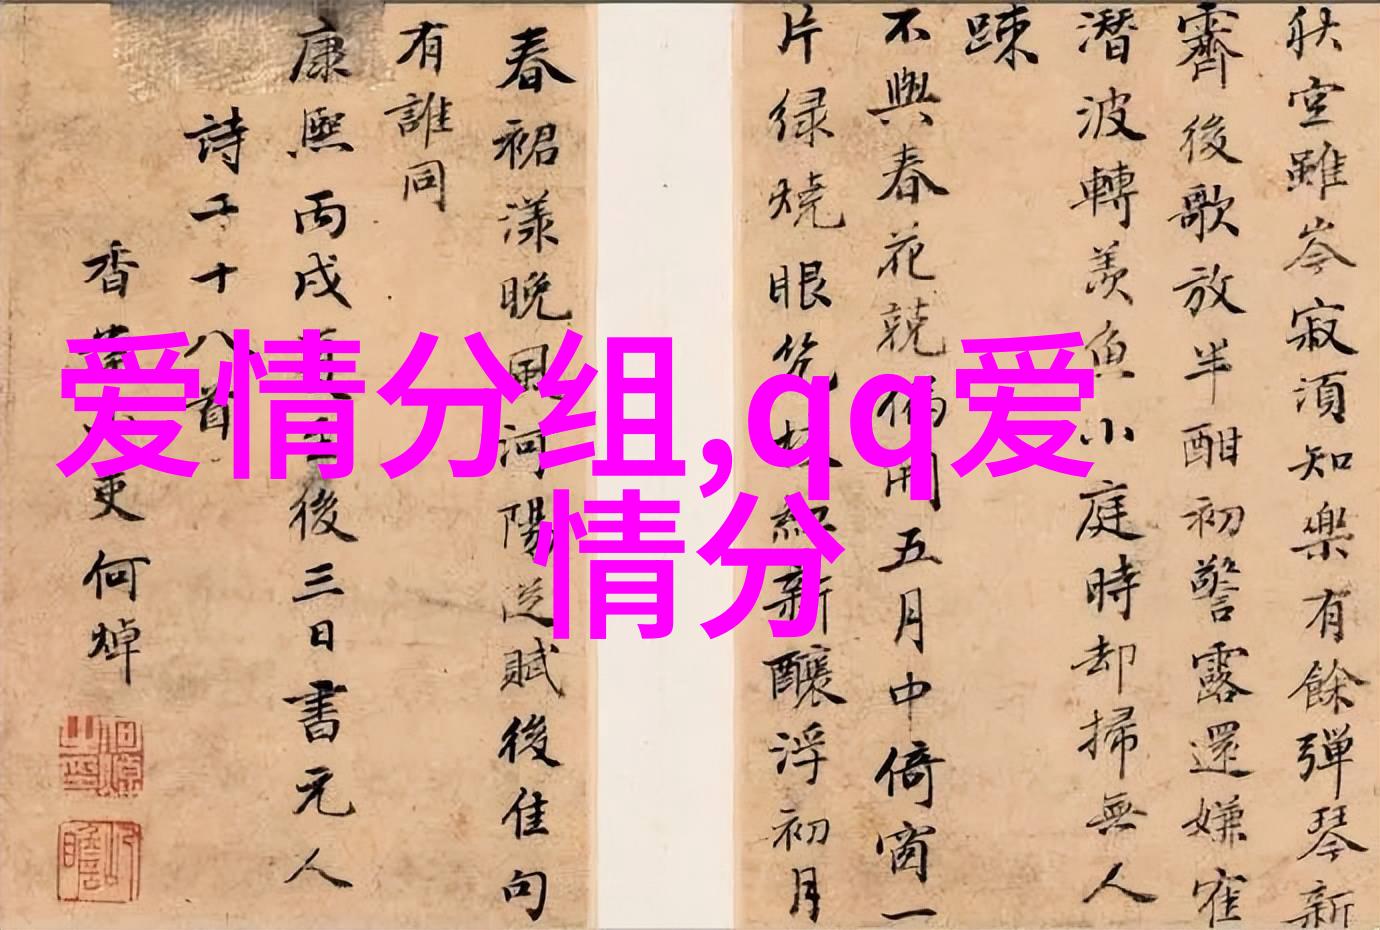 秋空雖岑寂須知樂有餘彈琴新
霽後歌放半酣初警露還嫌寉
潛波轉羨魚小庭時却掃無人
踈
不與春花競偏開五月中倚窗一
片緑燒眼幾枝紅新釀浮初月
春裙漾晚風河陽從賦後佳句
有誰同
康熙丙戌後三日書元人
詩二十八首
香吏何焯
爱情分组,qq爱
情分